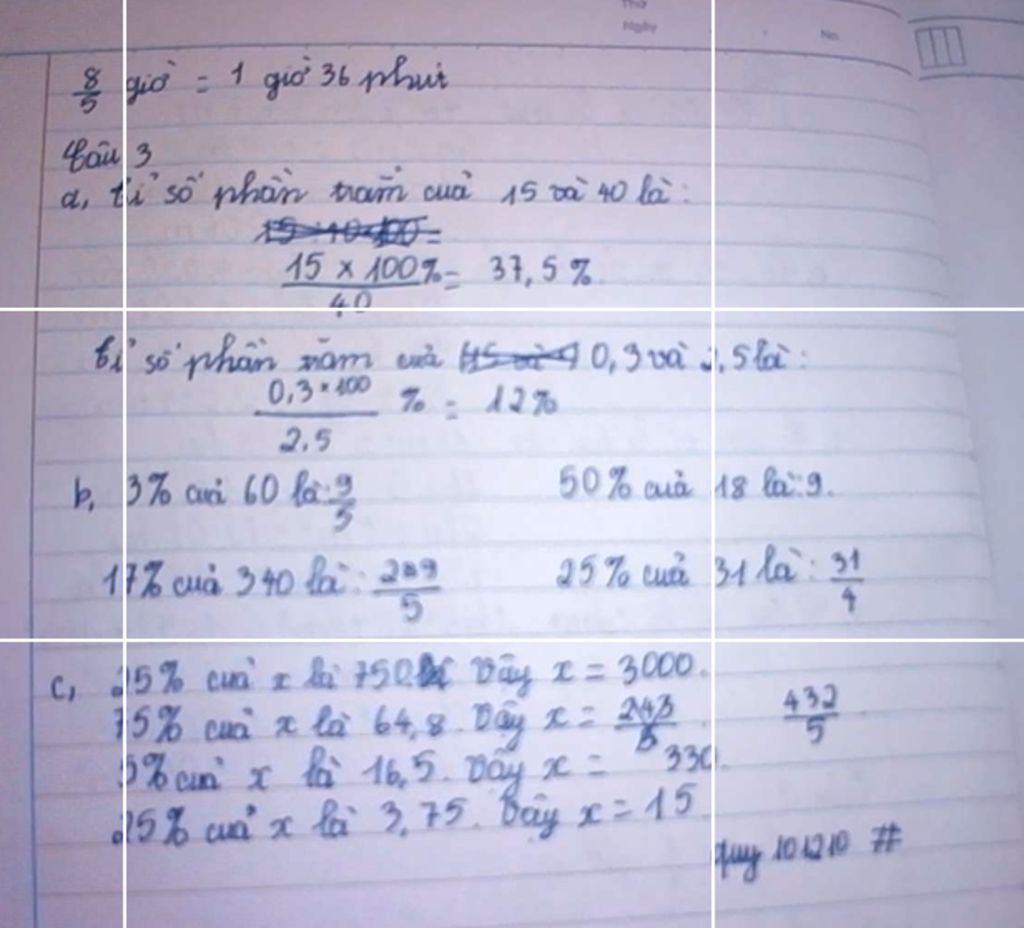 Thứ
Ngày
No.
8/5 giờ = 1 giờ 36 phút
Câu 3
a, tỉ số phần trăm của 15 và 40 là:
15 × 100% / 40 = 37,5 %
tỉ số phần trăm của 0,3 và 2,5 là:
0,3 × 100 / 2.5 % = 12%
b, 3% của 60 là: 9/5 50% của 18 là: 9.
17% của 340 là: 289/5 25% của 31 là: 31/4
c, 25% của x là 750. Vậy x = 3000.
75% của x là 64,8. Vậy x = 432/5
5% của x là 16,5. Vậy x = 330.
25% của x là 3,75. Vậy x = 15
quy 101210 #